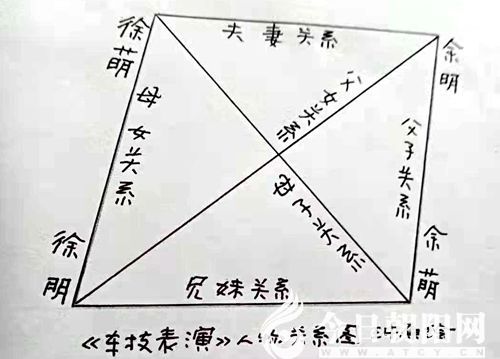 徐萌
夫妻关系
余明
母女关系
父女关系
父子关系
母子关系
徐明
兄妹关系
余萌
《车技表演》人物关系图
今日朝阳网
WWW.ATCY.CN